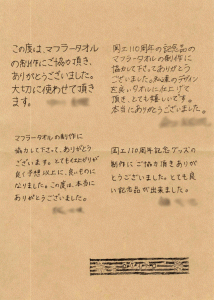 この度は、マフラータオル
の制作にご協力頂き、
ありがとうございました。
大切に使わせて頂き
ます。
国工110周年の記念品の
マフラータオルの制作に
協力して下さってありがとう
ございました。私達のデザイン
を良いタオルに仕上げて
頂き、とても嬉しいです。
本当にありがとうございました。
マフラータオルの制作に
協力して下さって、ありがとう
ございます。とても仕上がりが
良く予想以上に、良いものに
なりました。この度は、本当に
ありがとうございました。
国工110周年記念グッズの
制作にご協力頂きありが
とうございました。とても良
い記念品が出来ました。